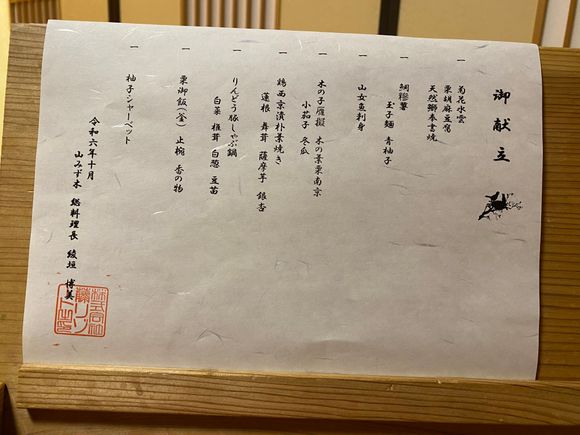 御献立
一 菊花水雲
栗胡麻豆腐
天然鰤奉書焼
一 鯛糝薯
玉子麺 青柚子
一 山女魚刺身
一 木の子雁擬 木の葉栗南京
小茄子 冬瓜
一 鶏西京漬朴葉焼き
蓮根 舞茸 薩摩芋 銀杏
一 りんどう豚しゃぶ鍋
白菜 椎茸 白葱 豆苗
一 栗御飯(釜) 止椀 香の物
一 柚子シャーベット
令和六年十月
山みず木 総料理長 綾垣 博美